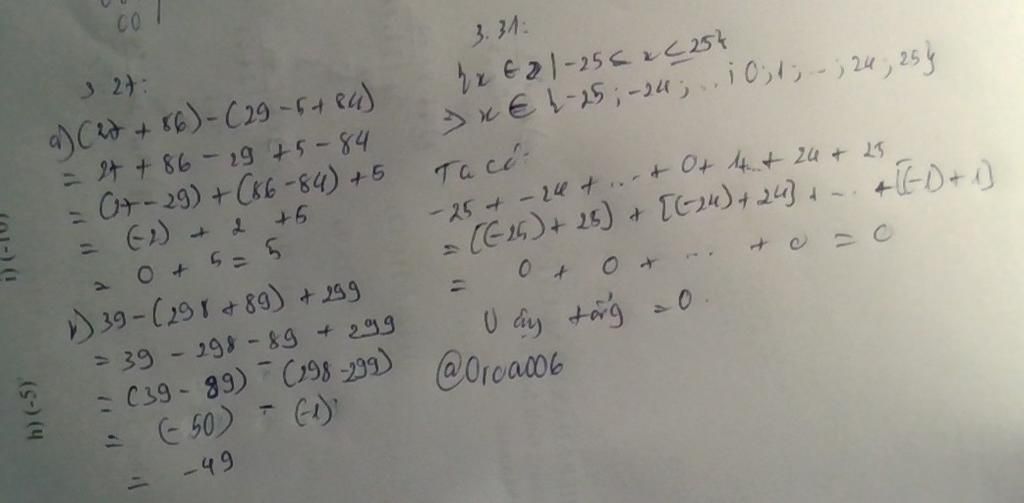 3.27:
a) (27 + 86) - (29 - 5 + 84)
= 27 + 86 - 29 + 5 - 84
= (27 - 29) + (86 - 84) + 5
= (-2) + 2 + 5
= 0 + 5 = 5
b) 39 - (298 + 89) + 299
= 39 - 298 - 89 + 299
= (39 - 89) - (298 - 299)
= (-50) - (-1)
= -49
3.31:
{x ∈ Z | -25 ≤ x ≤ 25}
=> x ∈ {-25; -24; ...; 0; 1; ...; 24; 25}
Ta có:
-25 + -24 + ... + 0 + 1 ... + 24 + 25
= [(-25) + 25] + [(-24) + 24] + ... + [(-1) + 1]
= 0 + 0 + ... + 0 = 0
Vậy tổng = 0.
h) (-5)